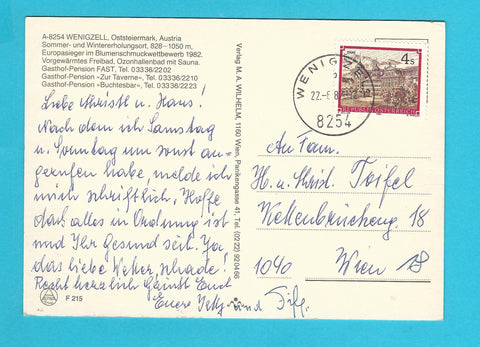 A-8254 WENIGZELL, Oststeiermark, Austria
Sommer- und Wintererholungsort, 828–1050 m,
Europasieger im Blumenschmuckwettbewerb 1982.
Vorgewärmtes Freibad, Ozonhallenbad mit Sauna.
Gasthof-Pension FAST, Tel. 03336/2202
Gasthof-Pension „Zur Taverne“, Tel. 03336/2210
Gasthof-Pension „Buchtesbar“, Tel. 03336/2223
Liebe Christl u. Hans!
Nach dem ich Samstag
u. Sonntag um sonst an-
gerufen habe, melde ich
mich schriftlich. Hoffe
daß alles in Ordnung ist
und Ihr Gesund seit. Ja,
das liebe Wetter, schade!
Recht herzlich Grüßt Euch
Eure und
F 215
Verlag M. A. WILHELM, 1160 Wien, Panikengasse 41, Tel. (02 22) 920466
WENIGZELL
22.-6.8
8254
4 S
REPUBLIK ÖSTERREICH
An Fam.
H. u. Christ. Toifel
Kettenbrückeng. 18
1040 Wien